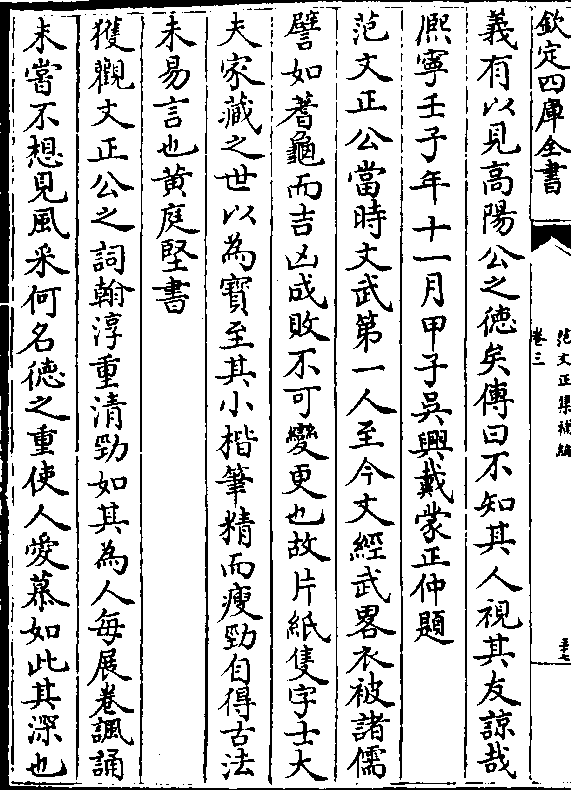 欽定四庫全書
范文正集補編
卷三
三十七
義有以見高陽公之德矣傳曰不知其人視其友諒哉
熙寧壬子年十一月甲子吳興戴蒙正仲題
范文正公當時文武第一人至今文經武畧衣被諸儒
譬如蓍龜而吉凶成敗不可變更也故片紙隻字士大
夫家藏之世以為寳至其小楷筆精而瘦勁自得古法
未易言也黄庭堅書
獲觀文正公之詞翰淳重清勁如其為人每展卷諷誦
未嘗不想見風采何名德之重使人愛慕如此其深也